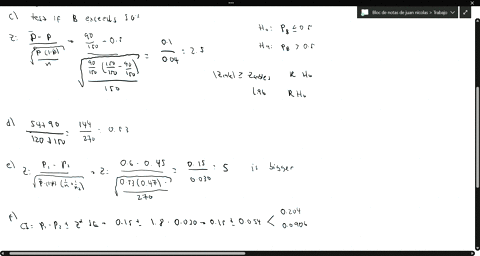 Bloc de notas de juan nicolas > Trabajo
c) test if B exceeds
Z: p̂ - p / √(p(1-p)/n) → 90/150 - 0.5 / √(90/150 (150/150 - 90/150) / 150) = 0.1/0.04 = 2.5
H0: PB ≤ 0.5
Ha: PB > 0.5
R H0
1.96 R H0
d) 54+90 / 120+150 = 144/270 = 0.53
e) Z: P1 - P2 → Z: 0.6 - 0.45 / √(0.53(0.47) / 270) = 0.15/0.030 = 5 is bigger
f) CI = P1 - P2 ± Z* → 0.15 ± 1.8 · 0.030 → 0.15 ± 0.054 < 0.204